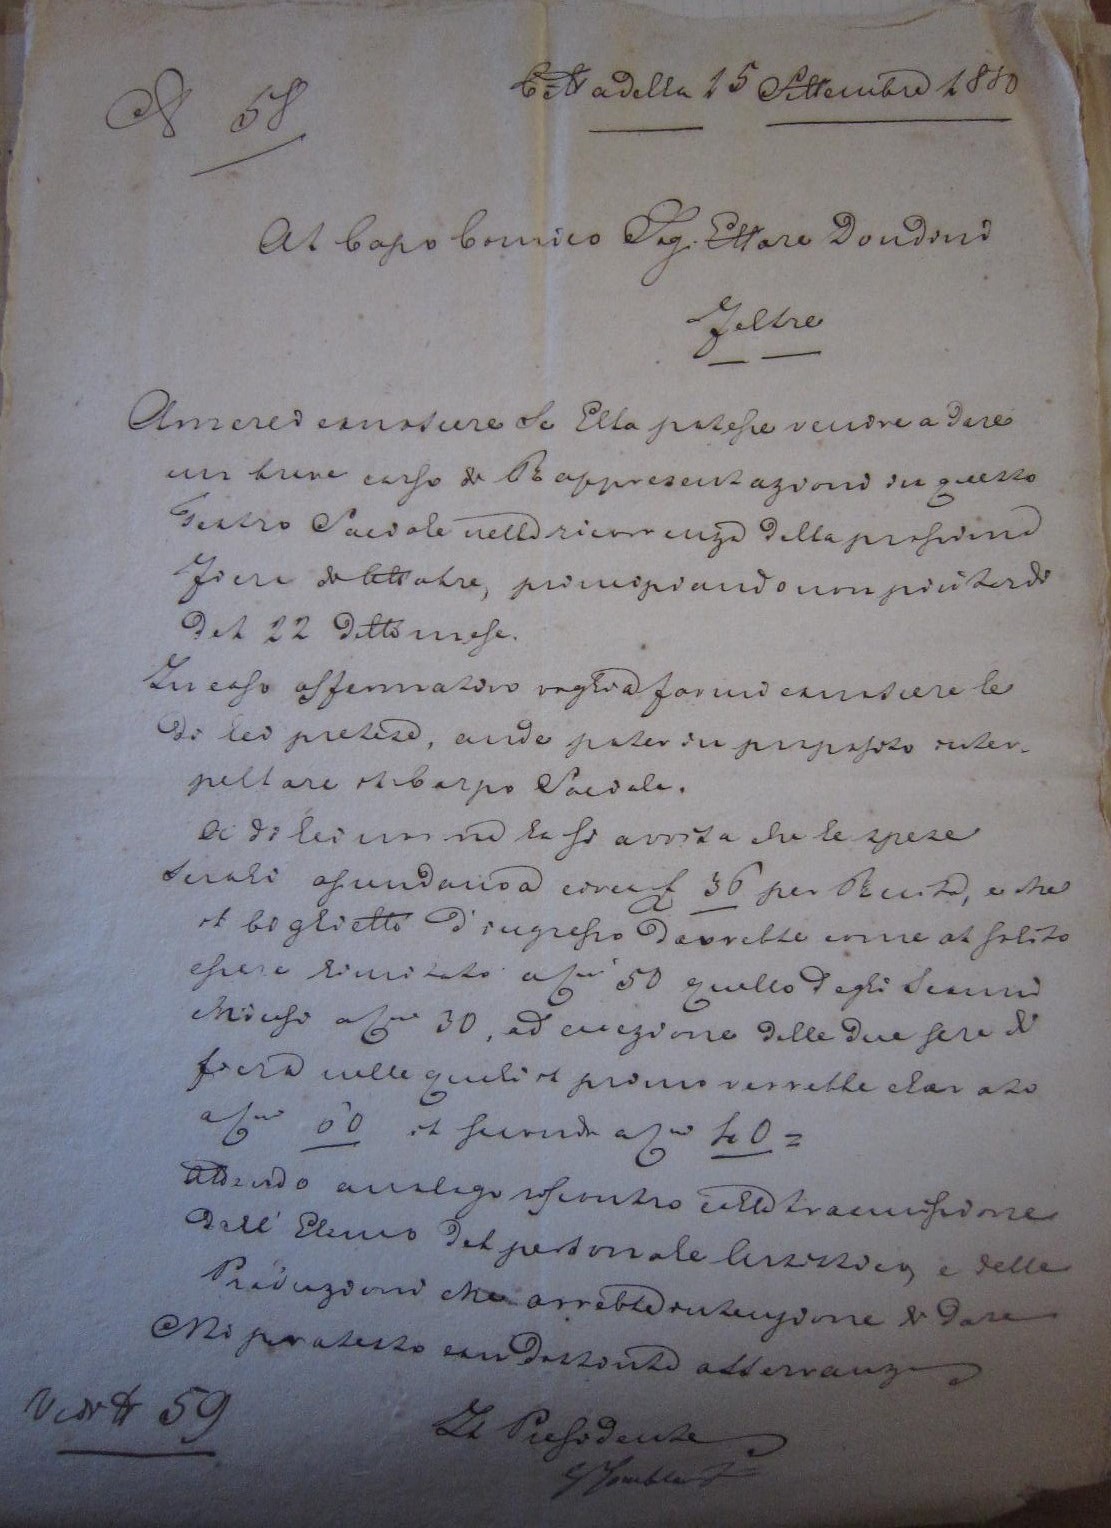 N 58
Cittadella 15 Settembre 1880
Al Capo Comico Sig. Ettore Dondini
Feltre
Amerei conoscere se Ella potesse venire a dare
un breve corso di Rappresentazioni in questo
Teatro Sociale nella ricorrenza della prossima
Fiera di Ottobre, principiando non più tardi
del 22 detto mese.
In caso affermativo voglia farmi conoscere le
di Lei pretese, onde poter in proposito inter-
pellare il Corpo Sociale.
A di Lei norma la si avvisa che le spese
serali ascendono a circa £ 36 per Recita, e che
il biglietto d'ingresso dovrebbe come al solito
essere limitato a Cmi 50 quello degli Scanni
chiusi a Cmi 30, ad eccezione delle due sere di
fiera nelle quali il primo verrebbe elevato
a Cmi 60 il secondo a Cmi 40 =
Attendo analogo riscontro colla trasmissione
dell' Elenco del personale Artistico, e delle
Produzioni che avrebbe intenzione di dare
Mi protesto con distinta osservanza
Il Presidente
Vedi N 59